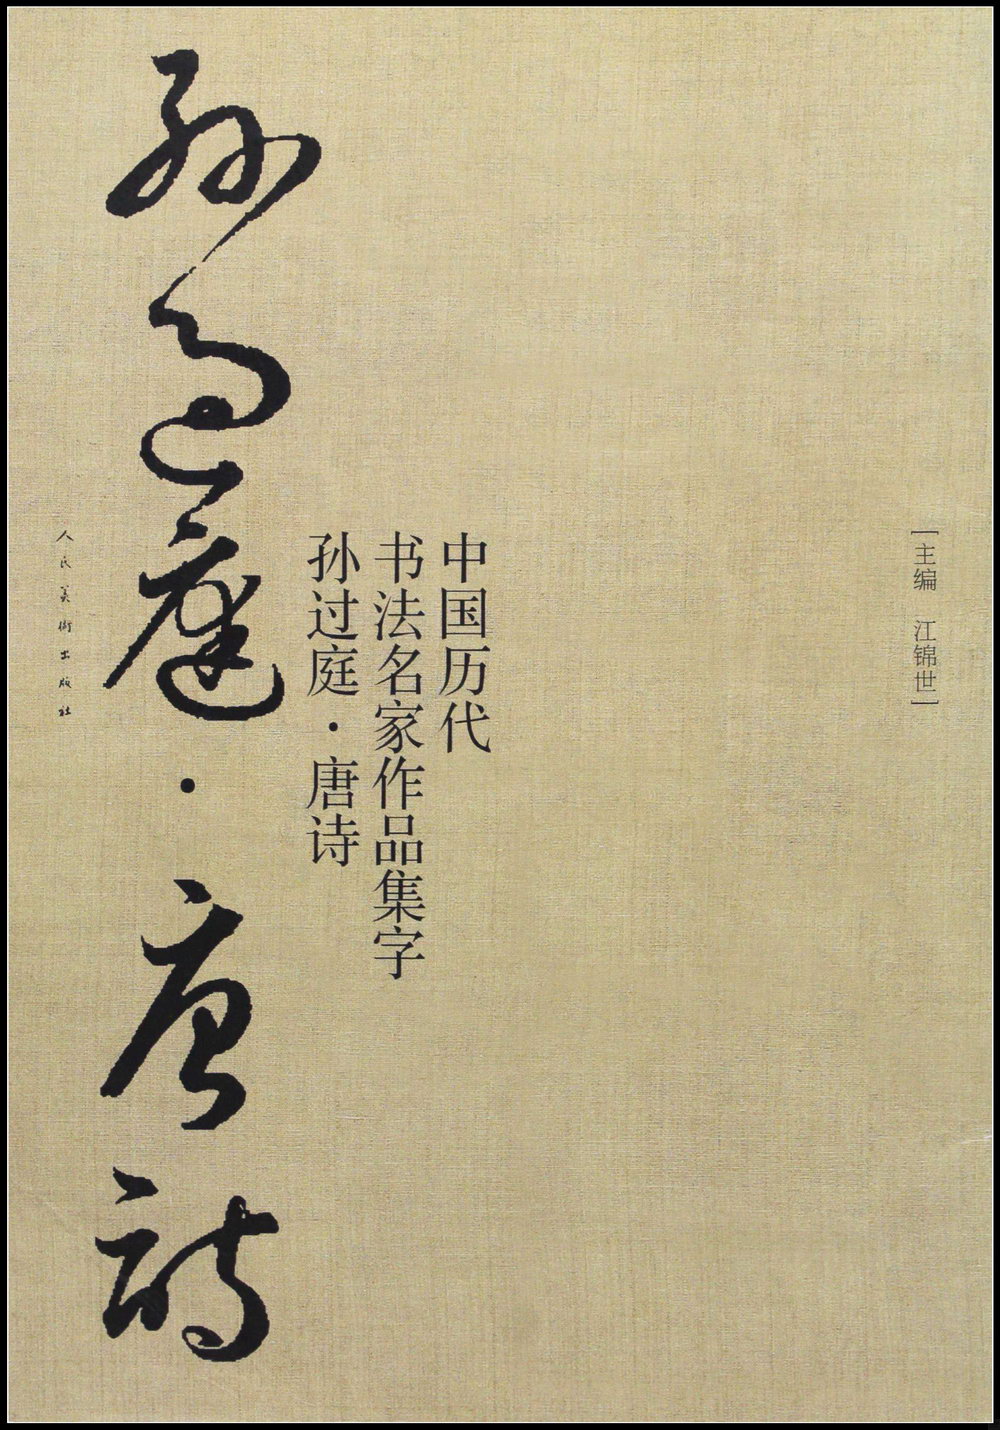 [主编 江锦世]
中国历代
书法名家作品集字
孙过庭·唐诗
孙过庭·唐诗
人民美術出版社